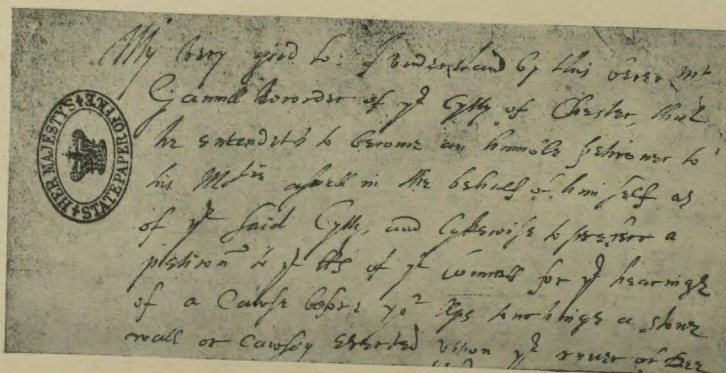 My very good lo: I understand by this bearer mr
Gamull Recorder of ye Cytty of Chester, that
he entendeth to become an humble petitioner to
his Matie aswell in the behalf of him self as
of ye said Cytty, and lykewise to preferr a
petition to ye lls of ye Counsell for ye hearinge
of a Cawse before yor lps touchinge a stone
wall or Cawsey erected uppon ye ryver of Dee
HER MAJESTY'S STATE PAPER OFFICE